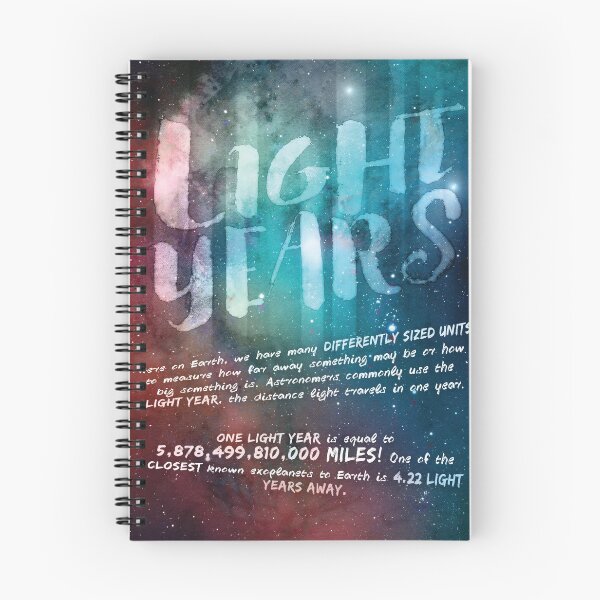 LIGHT
YEARS
ere on Earth, we have many DIFFERENTLY SIZED UNITS
to measure how far away something may be or how
big something is. Astronomers commonly use the
LIGHT YEAR, the distance light travels in one year.
ONE LIGHT YEAR is equal to
5,878,499,810,000 MILES! One of the
CLOSEST known exoplanets to Earth is 4.22 LIGHT
YEARS AWAY.